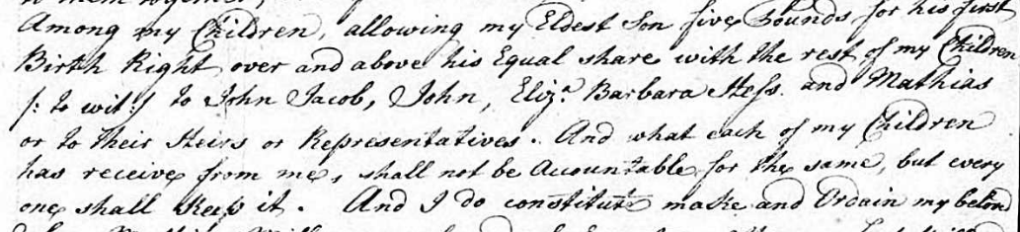 to them together,
Among my Children, allowing my Eldest Son five Pounds, for his first
Birth Right, over and above his Equal share with the rest, of my Children
/: to wit :/ to John Jacob, John, Eliz.a Barbara Hess. and Mathias
or to their Heirs or Representatives. And what each of my Children
has receive from me, shall not be Accountable for the same, but every
one shall keep it. And I do constitute make and Ordain my belovd